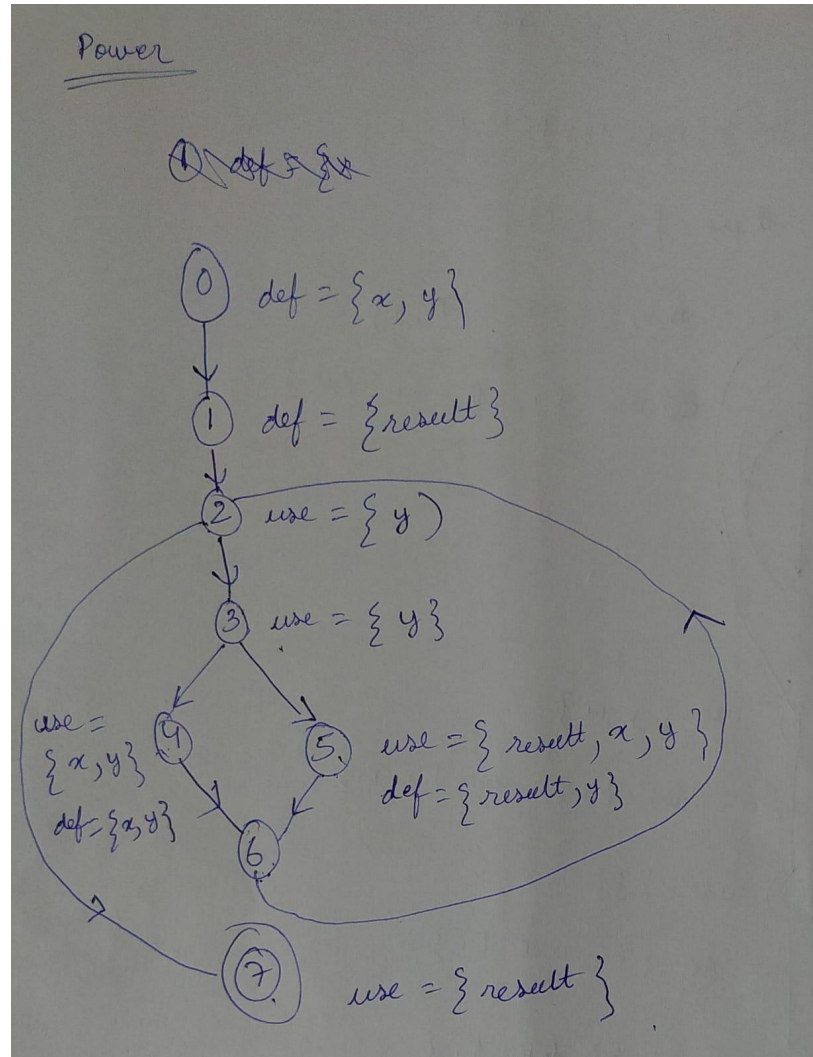 Power
0 def = {x, y}
1 def = {result}
2 use = {y)
3 use = {y}
use =
{x, y}
def={x,y}
4
5 use = {result, x, y}
def={result,y}
6
7 use = {result}